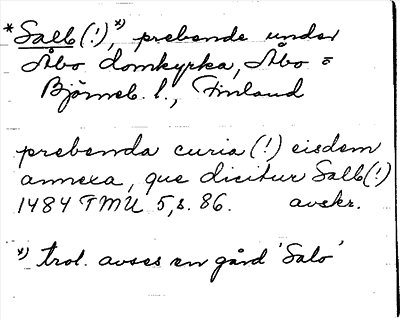 *Salb(!)*), prebende under
Åbo domkyrka, Åbo o
Björneb. l., Finland
prebenda curia(!) eisdem
annexa, que dicitur Salb(!)
1484 TMU 5, s. 86. avskr.
*) trol. avses en gård 'Salo'